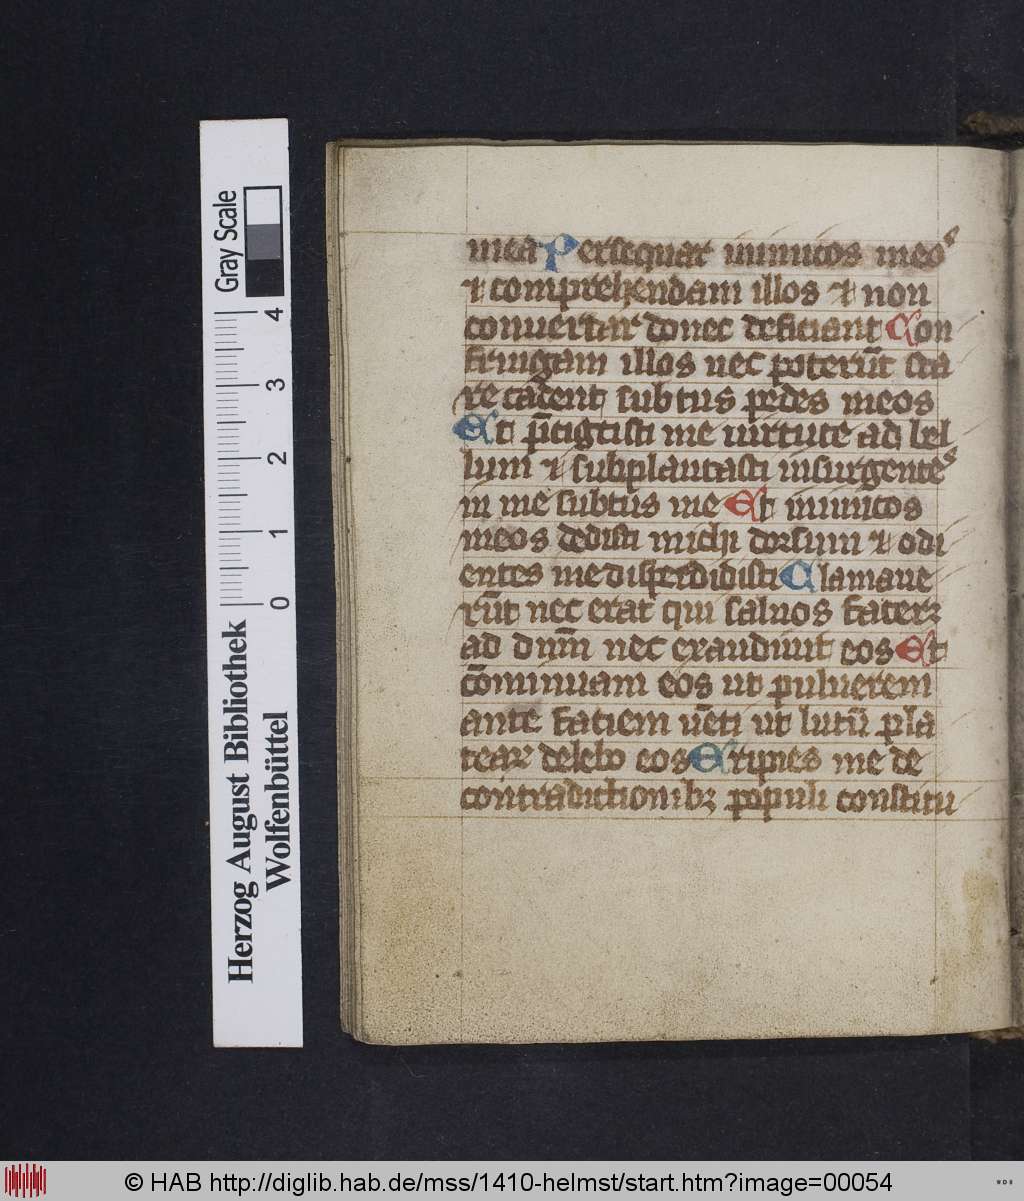 mea Persequar inimicos meos
⁊ comprehendam illos ⁊ non
conuertar donec deficiant Con
fringam illos nec poterūt sta
re cadent subtus pedes meos
Et p̄cigtisti me uirtute ad bel
lum ⁊ subplantasti insurgentes
in me subtus me Et inimicos
meos dedisti michi dorsum ⁊ odi
entes me disperdidisti Clamaue
rūt nec erat qui saluos faceꝛ
ad dnm̄ nec exaudiuit eos Et
cōminuam eos ut puluerem
ante faciem uēti ut lutū pla
tear delebo eos Eripies me de
contradictionibꝫ populi constitu
Gray Scale
4
3
2
1
0
Herzog August Bibliothek
Wolfenbüttel
© HAB http://diglib.hab.de/mss/1410-helmst/start.htm?image=00054